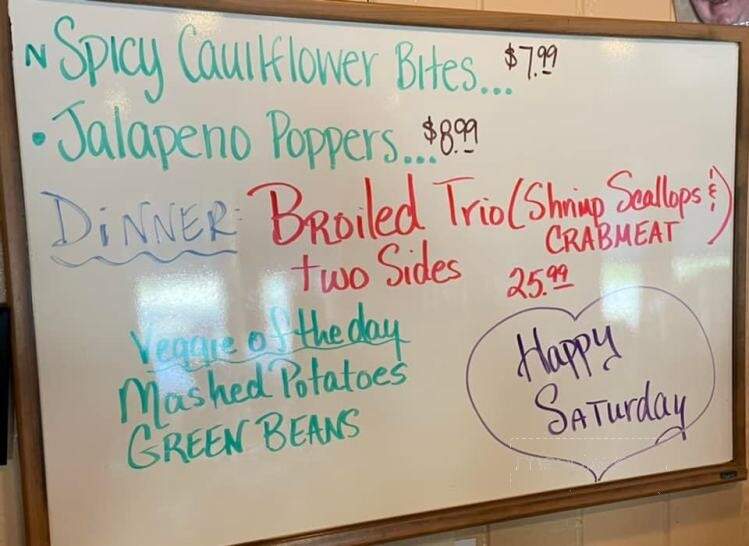 N Spicy Cauliflower Bites... $7.99
• Jalapeno Poppers... $8.99
DINNER: BRoiled Trio (Shrimp Scallops &
CRABMEAT)
two Sides 25.99
Veggie of the day
Mashed Potatoes
GREEN BEANS
Happy
SATurday